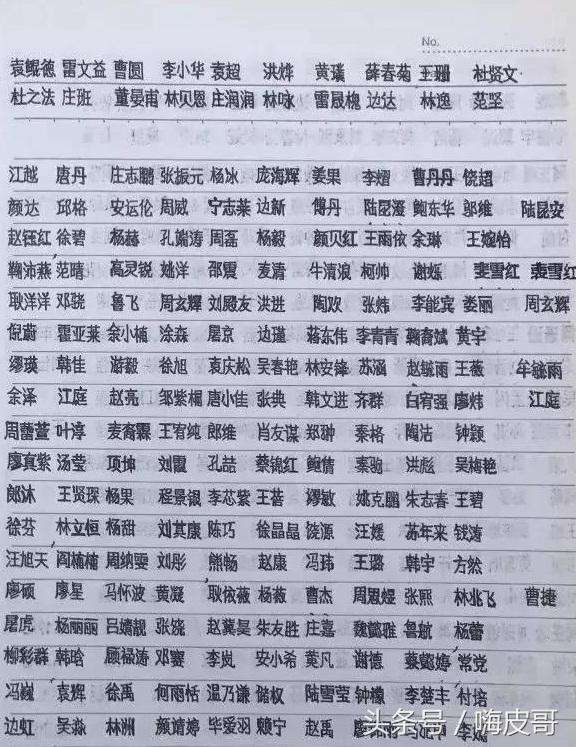 No.
袁鲲德 雷文益 曹圆 李小华 袁超 洪烨 黄瑱 薛春菊 王珊 杜贤文
杜之法 庄班 董晏甫 林贝恩 庄润润 林咏 雷晟槐 边达 林逸 范坚
江越 唐丹 庄志鹏 张振元 杨冰 庞海辉 姜果 李熠 曹丹丹 饶超
颜达 邱格 安运伦 周威 宁志莱 边新 傅丹 陆昆漫 鲍东华 邬维 陆昆安
赵钰红 徐碧 杨赫 孔谢涛 周磊 杨毅 颜贝红 王雨依 余琳 王嫁怡
鞠沛燕 范晴 高灵锐 姚洋 邵震 麦清 牛清浪 柯帅 谢烁 裴雪红
耿洋洋 邓骁 鲁飞 周玄辉 刘殿友 洪进 陶双 张炜 李能宾 娄丽 周玄辉
倪蔚 霍亚莱 余小楠 涂森 屠京 边瑾 蒋东伟 李青青 鞠裔斌 黄宇
缪瑛 韩佳 游毅 徐旭 袁庆松 吴春艳 林安锋 苏涵 赵毓雨 王薇 牟毓雨
余泽 江庭 赵亮 邹紫桐 唐小佳 张典 韩文进 齐群 白宥强 廖炜 江庭
周蕾萱 叶淳 麦裔霖 王宥纯 郎维 肖友谋 郑翀 秦格 陶沽 钟颖
廖真紫 汤莹 项坤 刘霞 孔喆 蔡锦红 鲍倩 秦驰 洪彪 吴梅艳
郎沐 王贤琛 杨果 程景银 李芯紫 王蓓 缪敏 姚克鹏 朱志春 王碧
徐芬 林立恒 杨甜 刘其康 陈巧 徐晶晶 饶源 汪媛 苏年来 钱涛
汪旭天 阎楠楠 周纳雯 刘彤 熊畅 赵康 冯玮 王璐 韩宇 方然
廖硕 廖星 马怀波 黄凝 耿依薇 杨薇 曹杰 周思煜 张熙 林兆飞 曹捷
屠虎 杨丽丽 吕婧靓 张饶 赵冀昊 朱友胜 庄嘉 魏懿雅 鲁敏 杨蕾
柳彩群 韩晗 顾禄涛 邓赛 李岚 安小希 黄凡 谢德 蔡懿婷 常党
冯巍 袁辉 徐禹 何雨恬 温乃谦 储权 陆雪莹 钟檬 李楚丰 付培
边虹 吴淼 林洲 颜婧婷 毕爱羽 赖宁 赵禹
头条号 / 嗨皮哥